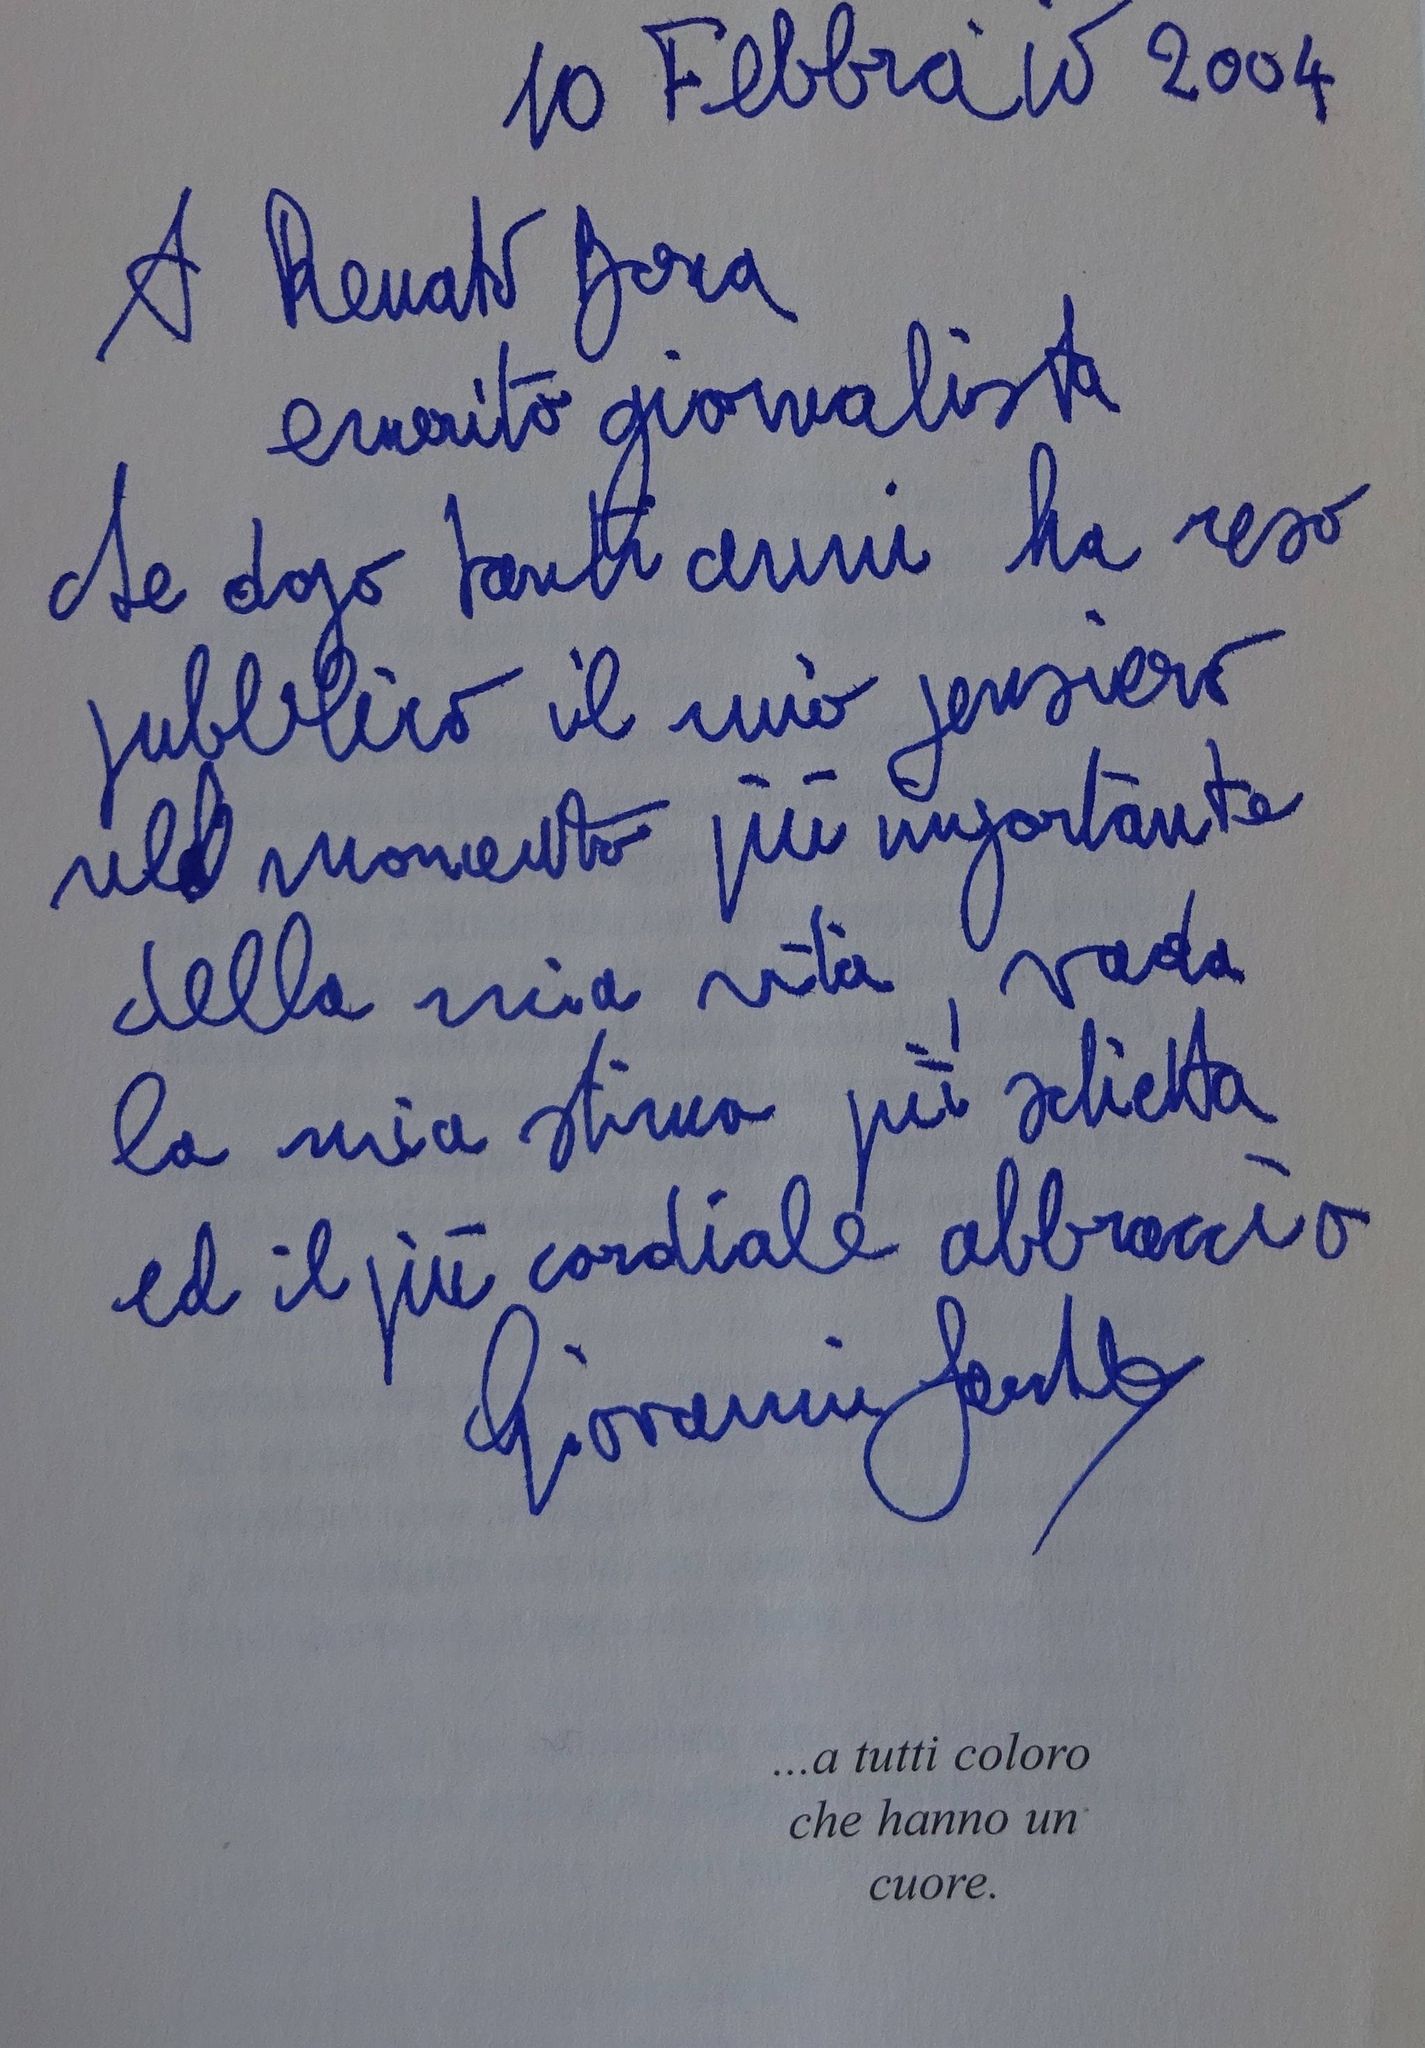 10 Febbraio 2004
A Renato Bona
emerito giornalista
che dopo tanti anni ha reso
pubblico il mio pensiero
nel momento più importante
della mia vita, vada
la mia stima più schietta
ed il più cordiale abbraccio
Giovanni
...a tutti coloro
che hanno un
cuore.